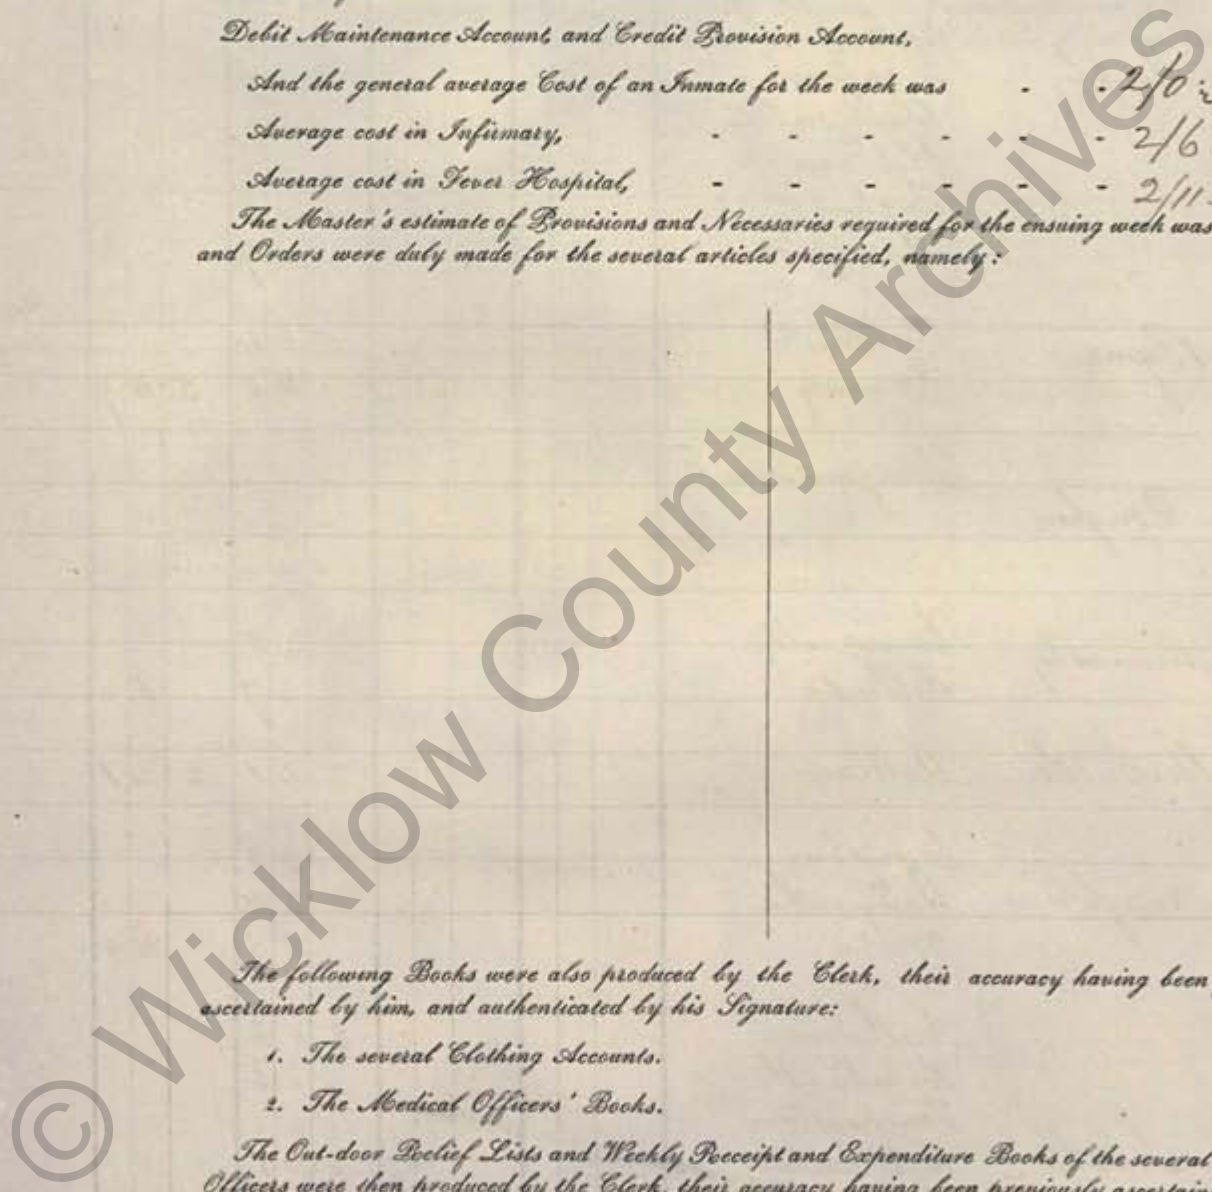 Debit Maintenance Account, and Credit Provision Account,
And the general average Cost of an Inmate for the week was - - 2/0
Average cost in Infirmary, - - - - - - 2/6
Average cost in Fever Hospital, - - - - - - 2/11
The Master's estimate of Provisions and Necessaries required for the ensuing week was
and Orders were duly made for the several articles specified, namely:
The following Books were also produced by the Clerk, their accuracy having been
ascertained by him, and authenticated by his Signature:
1. The several Clothing Accounts.
2. The Medical Officers' Books.
The Out-door Relief Lists and Weekly Receipt and Expenditure Books of the several
Officers were then produced by the Clerk, their accuracy having been previously ascertain
© Wicklow County Archives